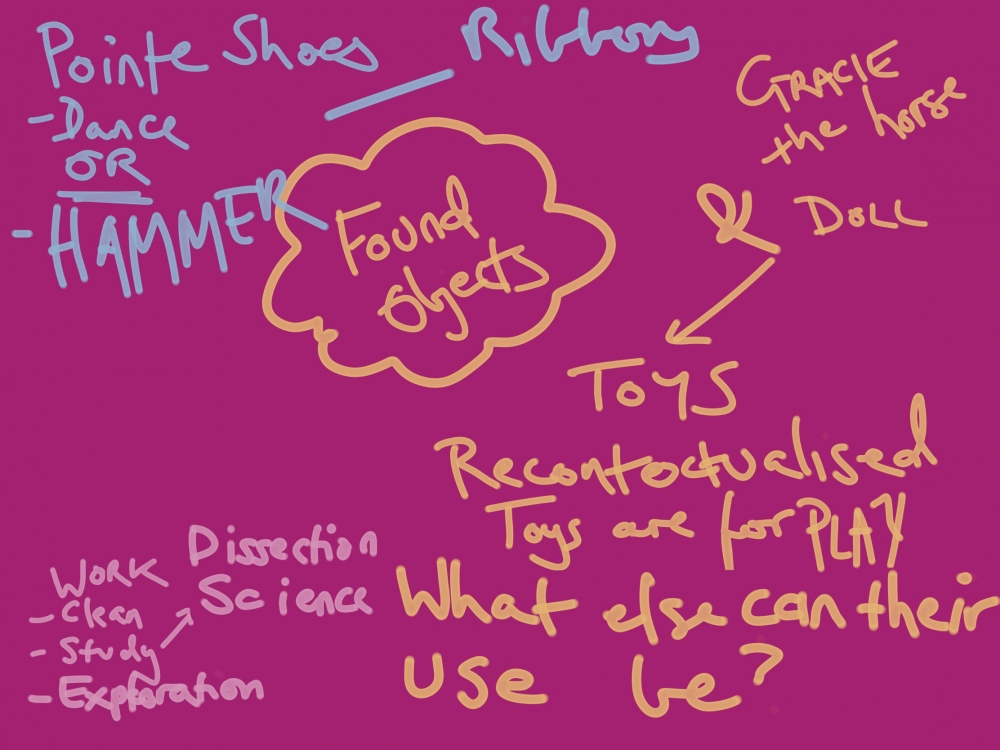 Pointe Shoes
- Dance
OR
- HAMMER
Ribbons
GRACIE
the horse
& DOLL
Found
objects
TOYS
Recontextualised
Toys are for PLAY
What else can their
use be?
WORK
- Clean
- Study
- Exploration
Dissection
Science